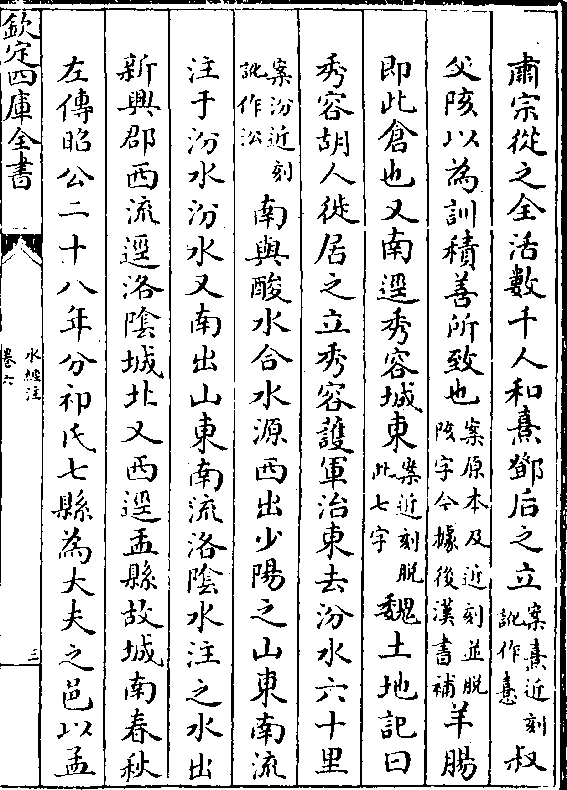 肅宗從之全活數千人和熹鄧后之立案熹近刻訛作憙叔
父陔以為訓積善所致也案原本及近刻並脫陔字今據後漢書補羊腸
即此倉也又南逕秀容城東案近刻脫此七字魏土地記曰
秀容胡人徙居之立秀容護軍治東去汾水六十里
案汾近刻訛作㳂南與酸水合水源西出少陽之山東南流
注于汾水汾水又南出山東南流洛陰水注之水出
新興郡西流逕洛陰城北又西逕盂縣故城南春秋
左傳昭公二十八年分祁氏七縣為大夫之邑以孟
欽定四庫全書
水經注
卷六
三